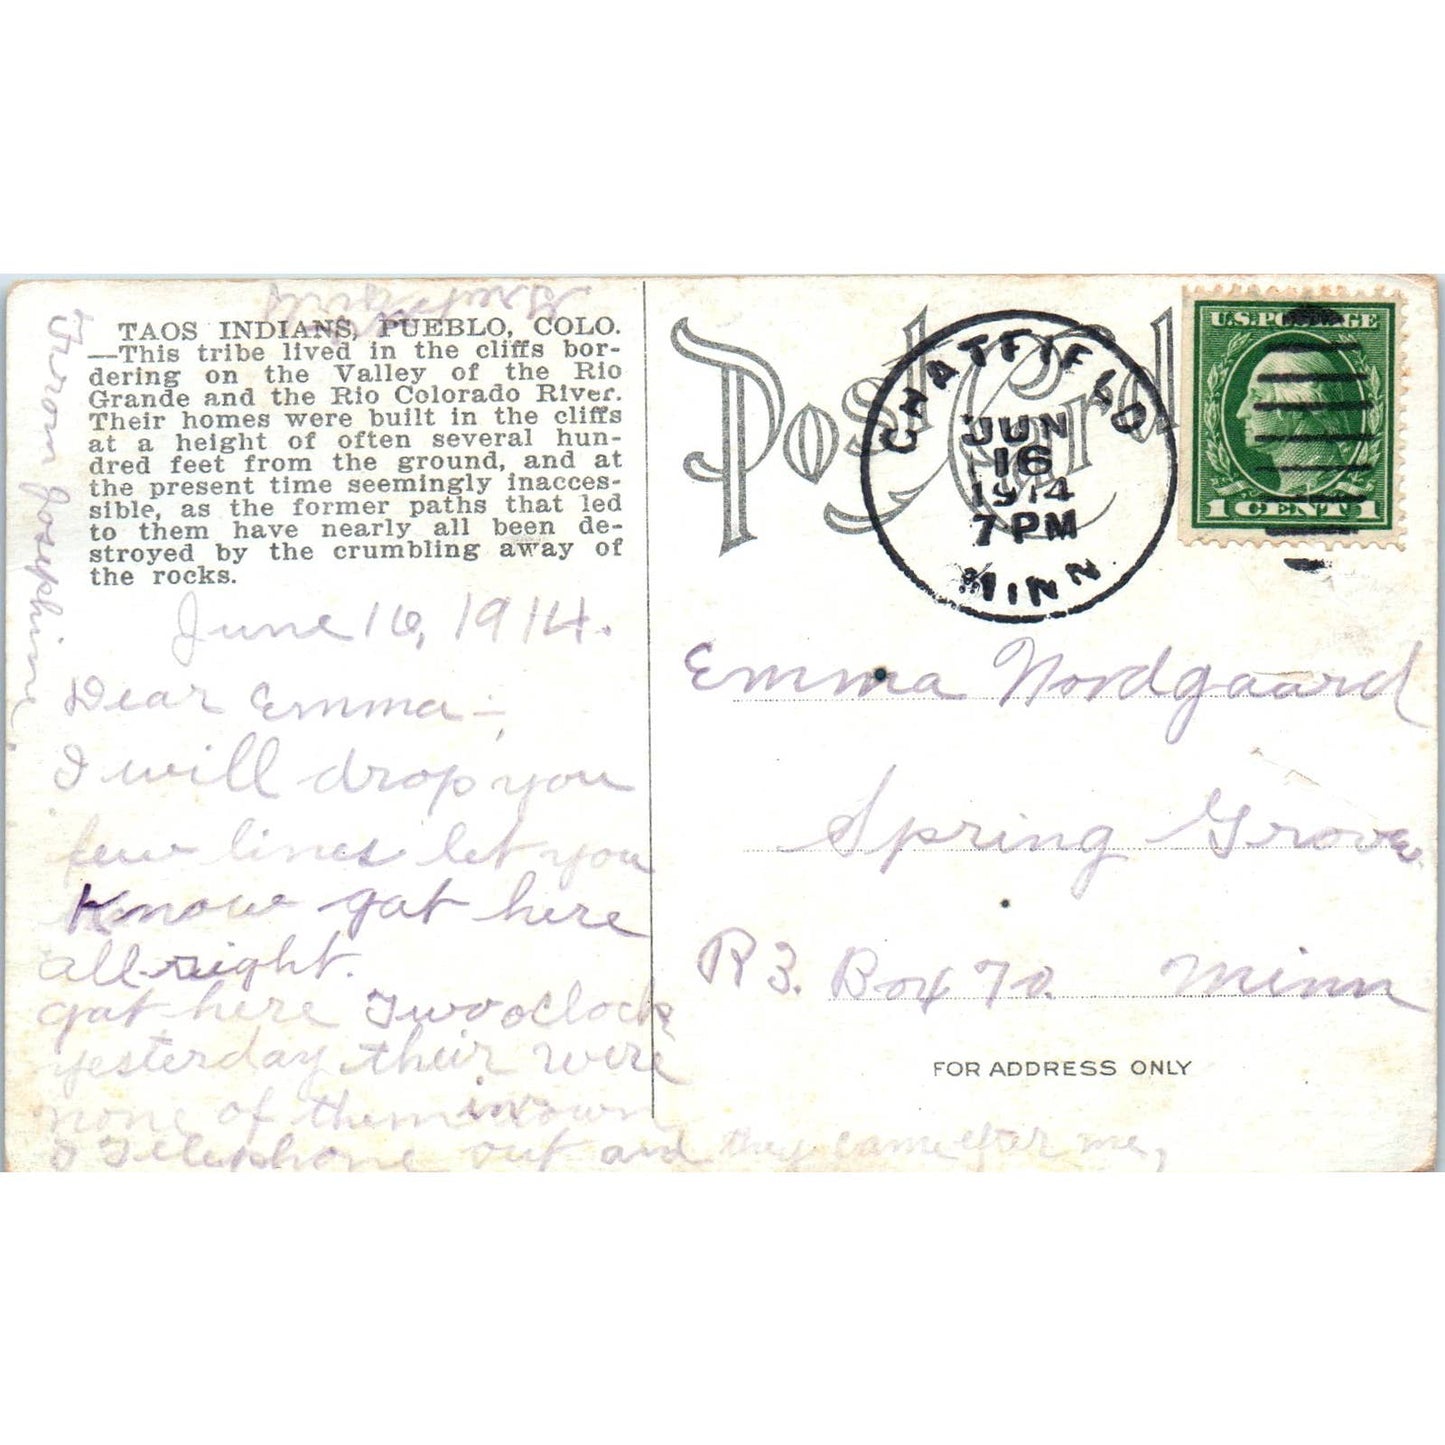 TAOS INDIANS, PUEBLO, COLO.
—This tribe lived in the cliffs bor-
dering on the Valley of the Rio
Grande and the Rio Colorado River.
Their homes were built in the cliffs
at a height of often several hun-
dred feet from the ground, and at
the present time seemingly inacces-
sible, as the former paths that led
to them have nearly all been de-
stroyed by the crumbling away of
the rocks.
June 16, 1914.
Dear Emma –
I will drop you
few lines let you
Know gat here
all right.
gat here Two oclock
yesterday their were
none of them in town
I Telephone out and they came after me,
From Josephine
Post Card
CHATFIELD
JUN
16
1914
7 PM
MINN
U.S. POSTAGE
1 CENT 1
Emma Nordgaard
Spring Grove
R 3. Box 70. Minn
FOR ADDRESS ONLY